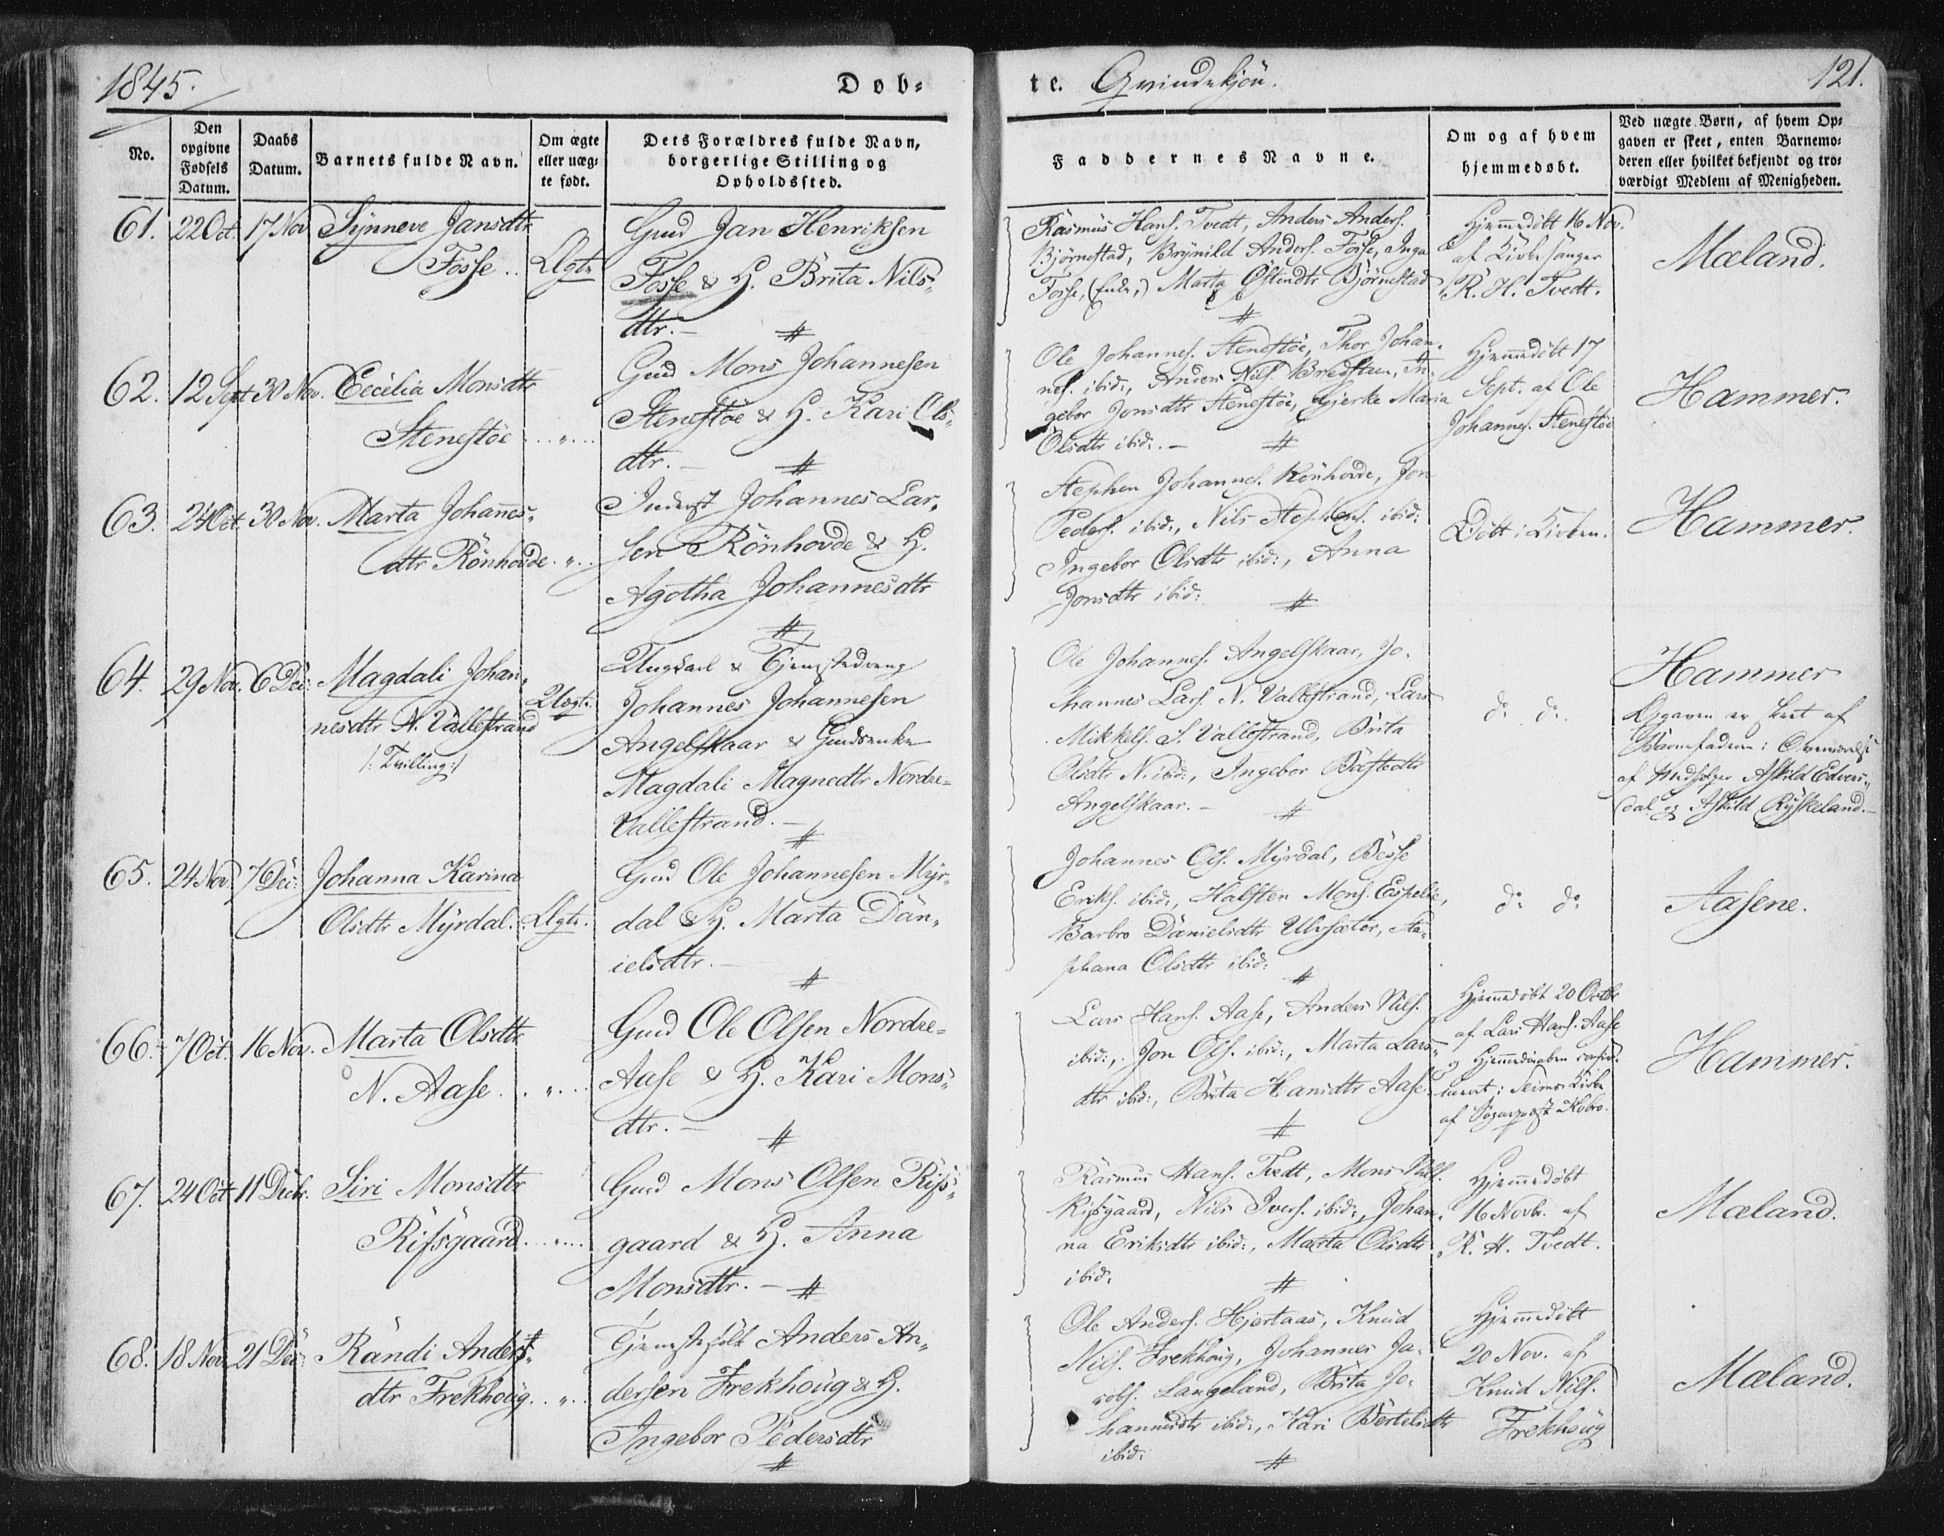 1845.
Døb-
te. Qvindekjøn.
121.
No.
Den opgivne Fødsels Datum.
Daabs Datum.
Barnets fulde Navn.
Om ægte eller uæg-
te født.
Dets Forældres fulde Navn,
borgerlige Stilling og
Opholdssted.
Faddernes Navne.
Om og af hvem
hjemmedøbt.
Ved uægte Børn, af hvem Op-
gaven er skeet, enten Barnemo-
deren eller hvilket bekjendt og tro-
værdigt Medlem af Menigheden.
61. 22 Oct. 17 Nov Synneve Jansdtr
Fosse .. Ægte
Gmd Jan Henriksen
Fosse & H. Brita Nils-
dtr. —
Rasmus Hans. Tvedt, Anders Anders.
Bjørnestad, Brynild Anders. Fosse, Inga
Fosse, (Enke,) Marta Østendtr Bjørnestad
Hjemmedøbt 16 Nov.
af Kirkesanger
R. H. Tvedt.
Mæland.
62. 12 Sept 30 Nov. Cecilia Monsdtr
Stenestöe
Gmd Mons Johannesen
Stenestöe & H. Kari Ols-
dtr. —
Ole Johannes. Stenestöe, Thor Johan-
nes. ibid:, Anders Nils. , In-
gebor Jonsdtr Stenestöe, Gjerke Maria
Olsdtr ibid:. —
Hjemmedøbt 17
Sept. af Ole
Johannes. Stenestöe
Hammer.
63. 24 Oct. 30 Nov. Marta Johannes-
dtr Rönhovde
Inderst Johannes Lar-
sen Rönhovde & H.
Agotha Johannesdtr
Stephen Johannes. Rönhovde, Jon
Peders. ibid:, Nils Stephens. ibid:
Ingebor Olsdtr ibid:, Anna
Jonsdtr ibid:
Døbt i Kirken.
Hammer.
64. 29 Nov. 6 Dec: Magdali Johan-
nesdtr N. Vallestrand
/: Tvilling :/
Uægte
Ungkarl & Tjenestedreng
Johannes Johannesen
Angelskaar & Gmdsenke
Magdali Magnedtr Nordre-
Vallestrand. —
Ole Johannes. Angelskaar, Jo-
hannes Lars. N. Vallestrand, Lars
Mikkels. S. Vallestrand, Brita
Olsdtr N. ibid:, Ingebor
Angelskaar. —
do do.
Hammer
Opgaven er skeet af
Barnefaderen i Overværelse
af Medfølger Askild Edvars-
dal og Askild Ryskeland.
65. 24 Nov. 7 Dec: Johanna Karina
Olsdtr Myrdal. Ægte.
Gmd Ole Johannesen Myr-
dal & H. Marta Dan-
ielsdtr. —
Johannes Ols. Myrdal, Besse
Eriks. ibid:, Halsten Mons. Espelie,
Barbro Danielsdtr Ulvsæter, Sta-
phana Olsdtr ibid:
do do
Aasene.
66. 7 Oct. 16 Nov. Marta Olsdtr
N. Aase
Gmd Ole Olsen Nordre-
Aase & H. Kari Mons-
dtr. —
Lars Hans. Aase, Anders Nils.
ibid:, Jon Ols. ibid:, Marta Lars-
dtr ibid:, Brita Hansdtr Aase
Hjemmedøbt 20 Octbr
af Lars Hans. Aase
og Hjemmedaaben
i Seims Kirke
af Sogneprest Kobro.
Hammer.
67. 24 Oct. 11 Decbr. Siri Monsdtr
Rifsgaard
Gmd Mons Olsen Rifs-
gaard & H. Anna
Monsdtr. —
Rasmus Hans. Tvedt, Mons Nils.
Rifsgaard, Nils Ivers. ibid:, Johan-
na Eriksdtr ibid:, Marta Olsdtr
ibid:
Hjemmedøbt
16 Novbr. af
R. H. Tvedt.
Mæland.
68. 18 Nov. 21 Dec: Randi Anders-
dtr Frekhoug
Tjenestefolk Anders An-
dersen Frekhoug & H.
Ingebor Pedersdtr
Ole Anders. Hjertaas, Knud
Nils. Frekhoug, Johannes Ja-
cobs. Langeland, Brita Jo-
hannesdtr ibid:, Kari Bertelsdtr
ibid:
Hjemmedøbt
20 Nov. af
Knud Nils.
Frekhoug
Mæland.